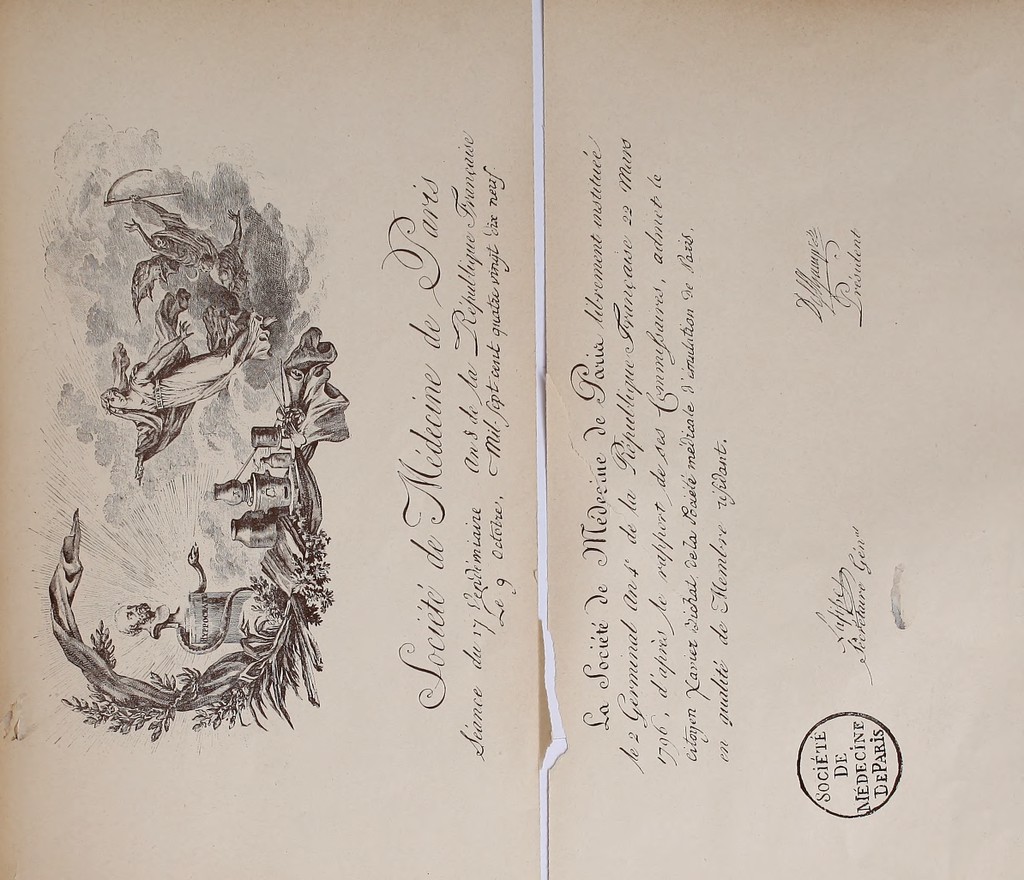 HYPPOCRA
Société de Médecine de Paris
Séance du 17 Vendémiaire An 8 de la République Française
Le 9 Octobre. Mil sept cent quatre vingt dix neuf
La Société de Médecine de Paris librement instituée
le 2 Germinal an 4 de la République Française 22 Mars
1796, d'après le rapport de ses Commissaires, admet le
citoyen Xavier Bichat de la Société médicale d'émulation de Paris,
en qualité de Membre résidant.
Président
Secrétaire Génal
SOCIÉTÉ
DE
MÉDECINE
DE PARIS